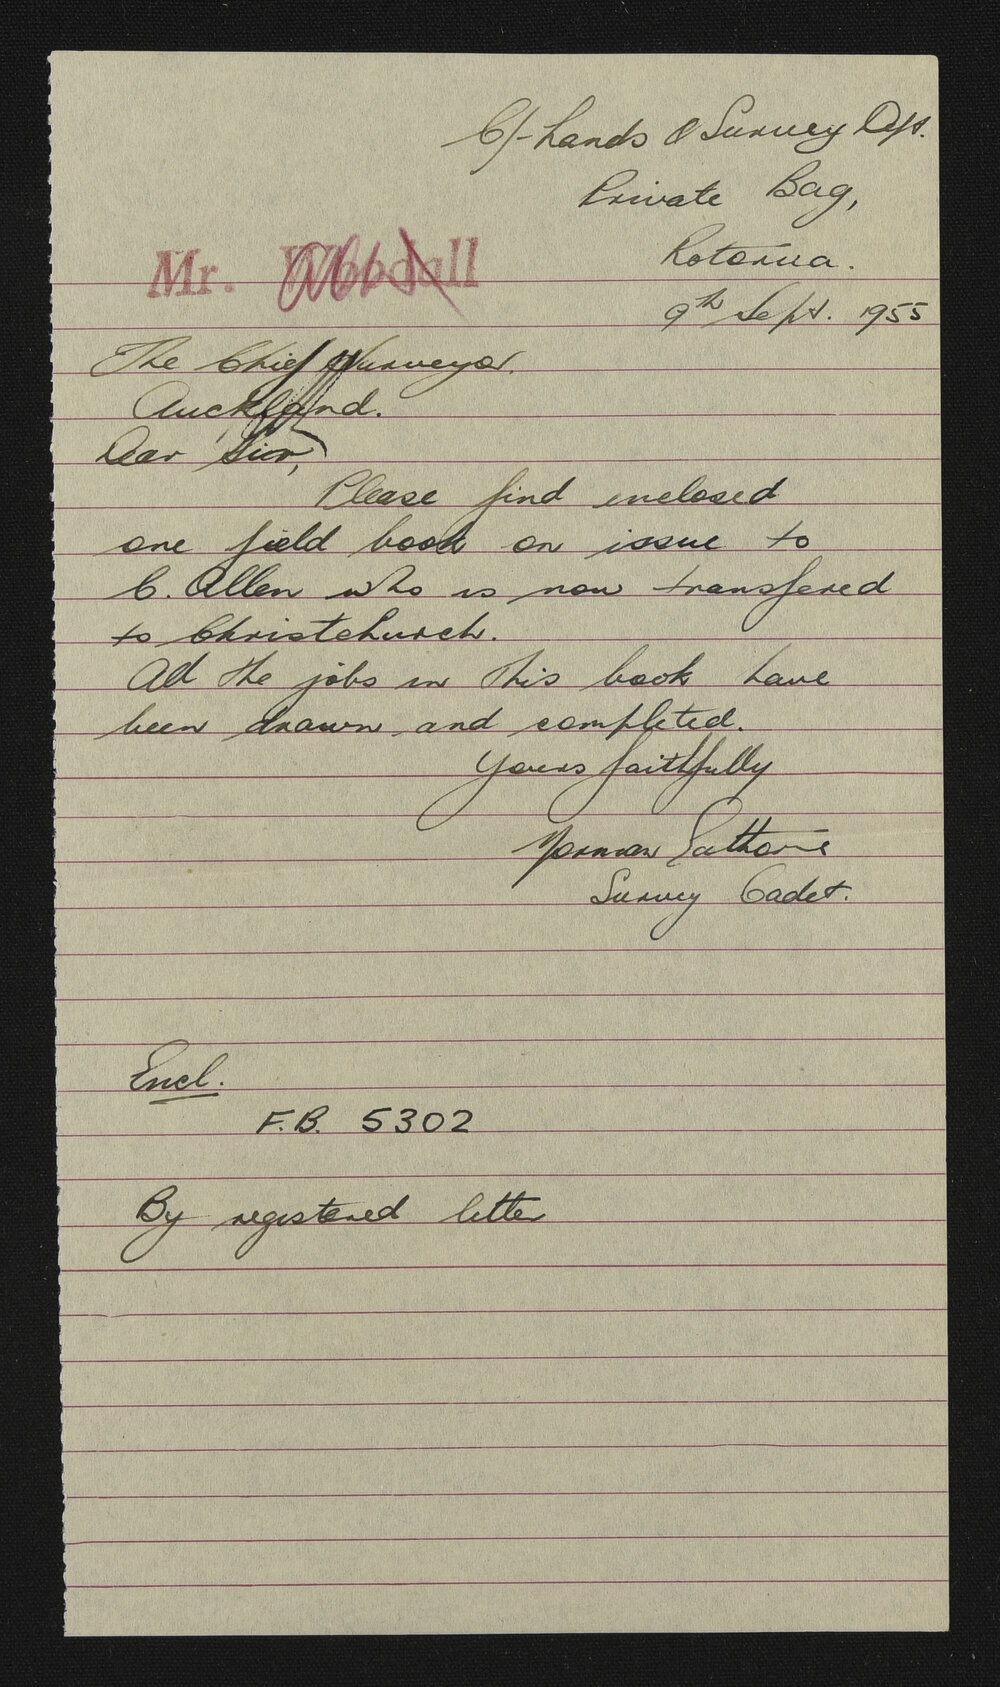 C/- Lands & Survey Dept.
Private Bag,
Rotorua.
Mr. Woodall
9th Sept. 1955
The Chief Surveyor.
Auckland.
Dear Sir,
Please find enclosed
one field book on issue to
C. Allen who is now transfered
to Christchurch.
All the jobs in this book have
been drawn and completed.
Yours faithfully
Norman
Survey Cadet.
Encl.
F.B. 5302
By registered letter